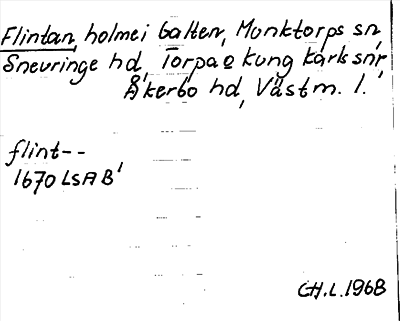 Flintan, holme i Galten, Munktorps sn,
Snevringe hd, Torpa o Kungs karls snr,
Åkerbo hd, Västm. l.
flint--
1670 LSA B'
CH.L. 1968